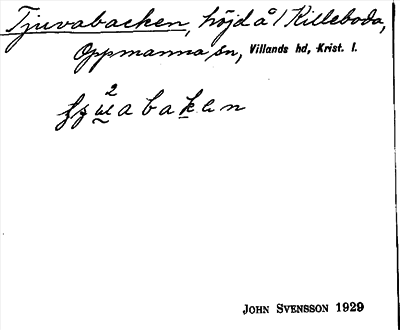 Tjuvabacken, höjd å 1 Killeboda,
Oppmanna sn, Villands hd, Krist. l.
John Svensson 1929